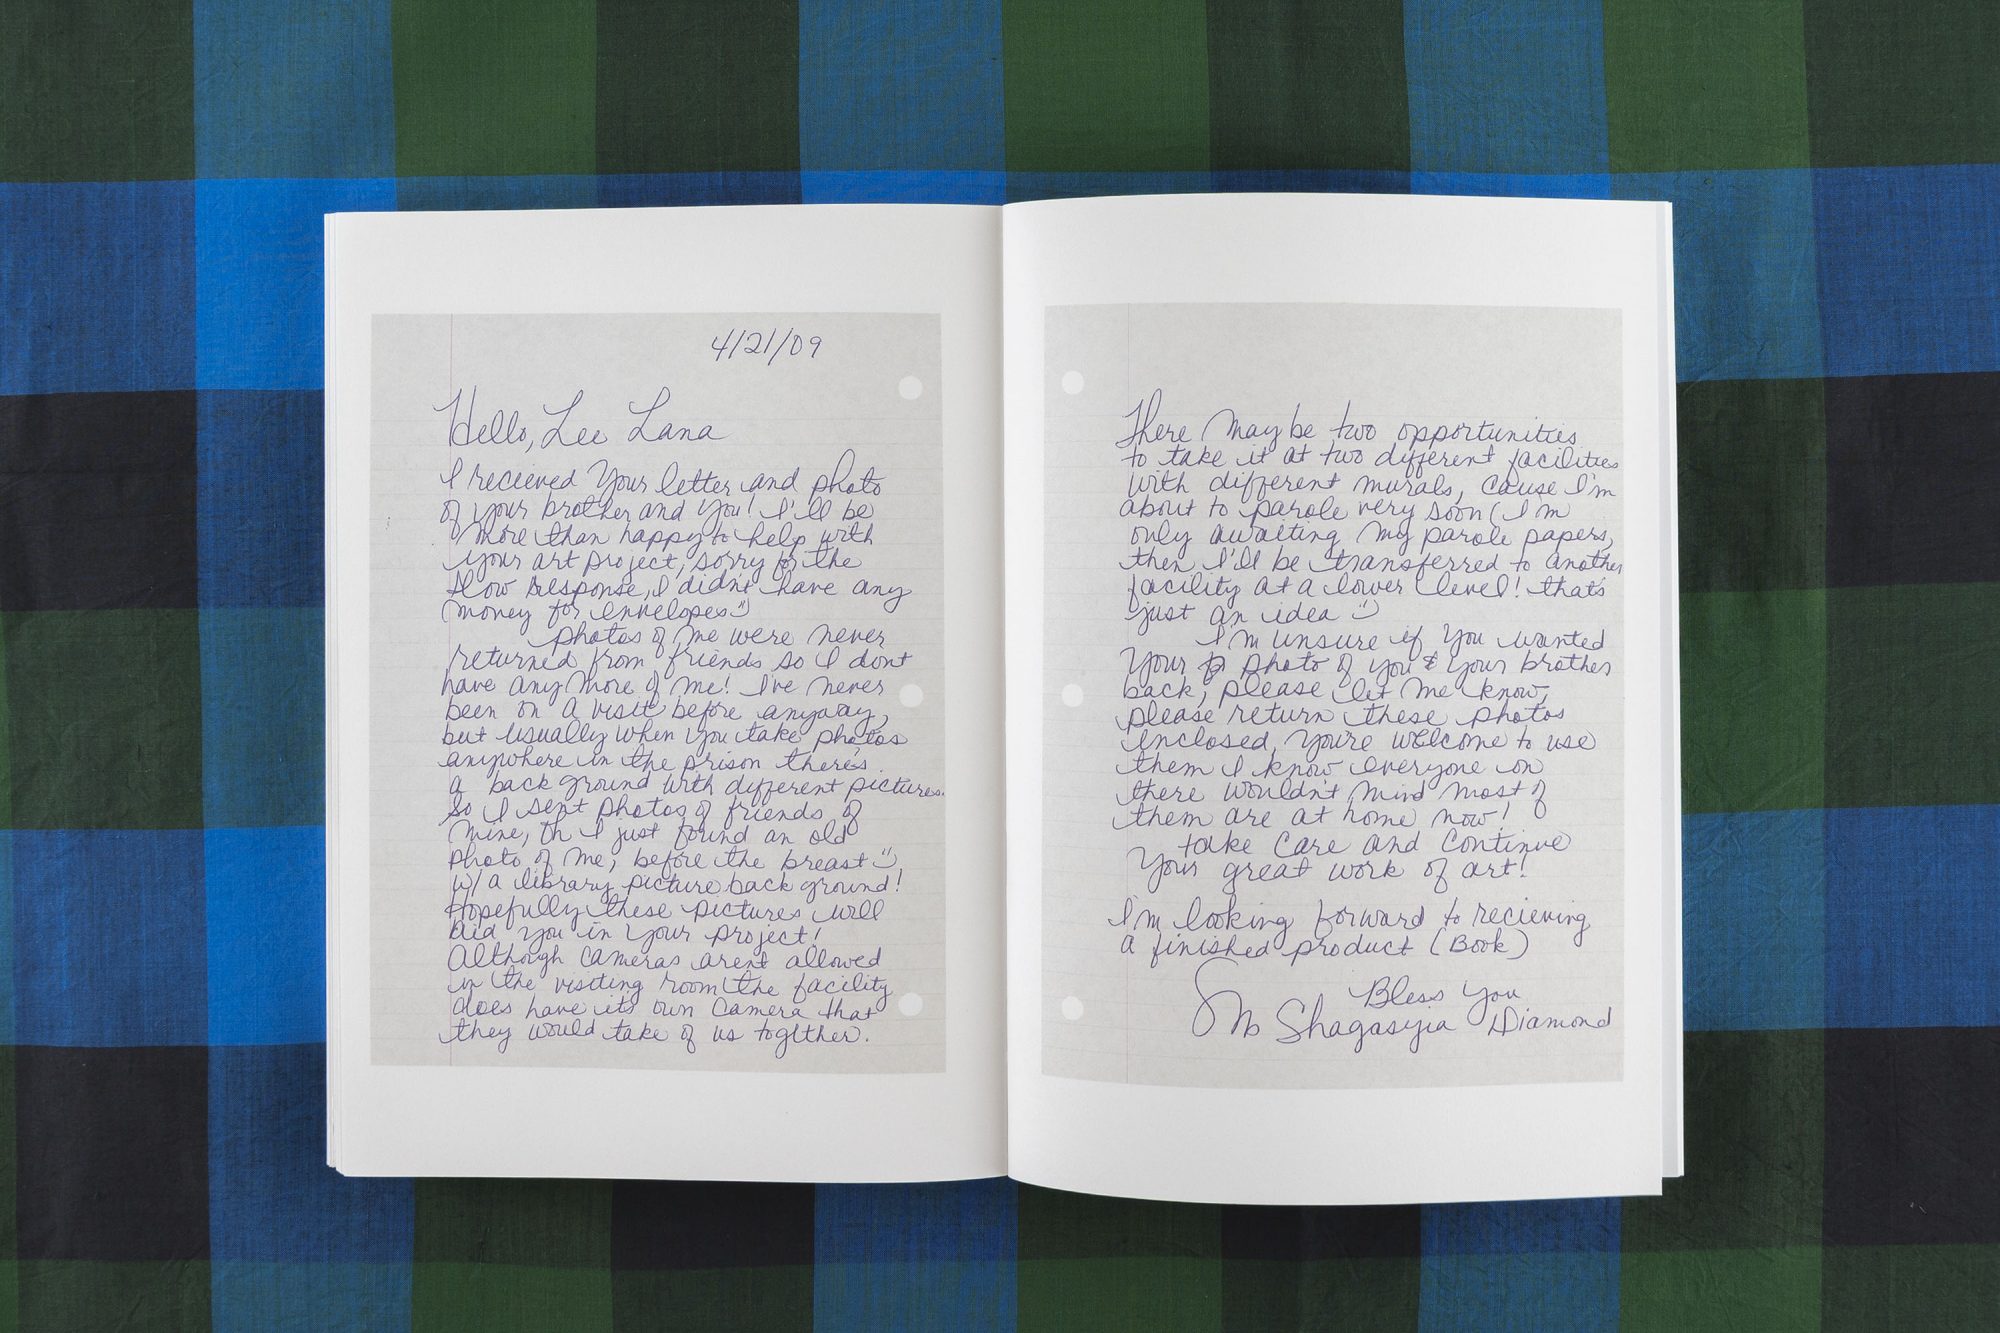 4/21/09
Hello, Lee Lana
I recieved Your letter and photo
of your brother and you! I'll be
more than happy to help with
your art project, sorry for the
slow response, I didnt have any
money for envelopes :)
photos of me were never
returned from friends so I dont
have any more of me! I've never
been on a visit before anyway,
but usually when you take photos
anywhere in the prison there's
a back ground with different pictures.
So I sent photos of friends of
mine, Oh I just found an old
photo of me, before the breast :)
w/ a library picture back ground!
Hopefully these pictures will
aid you in your project!
Although cameras arent allowed
in the visiting room the facility
does have its own camera that
they would take of us together.
There may be two opportunities
to take it at two different facilities
with different murals, cause I'm
about to parole very soon (I'm
only awaiting my parole papers,
then I'll be transferred to another
facility at a lower level! that's
just an idea :)
I'm unsure if you wanted
your photo of you & your brother
back, please let me know,
please return these photos
enclosed, You're welcome to use
them I know everyone on
there wouldn't mind most of
them are at home now!
take care and continue
Your great work of art!
I'm looking forward to recieving
a finished product (Book)
Bless You
Ms Shagasyia Diamond